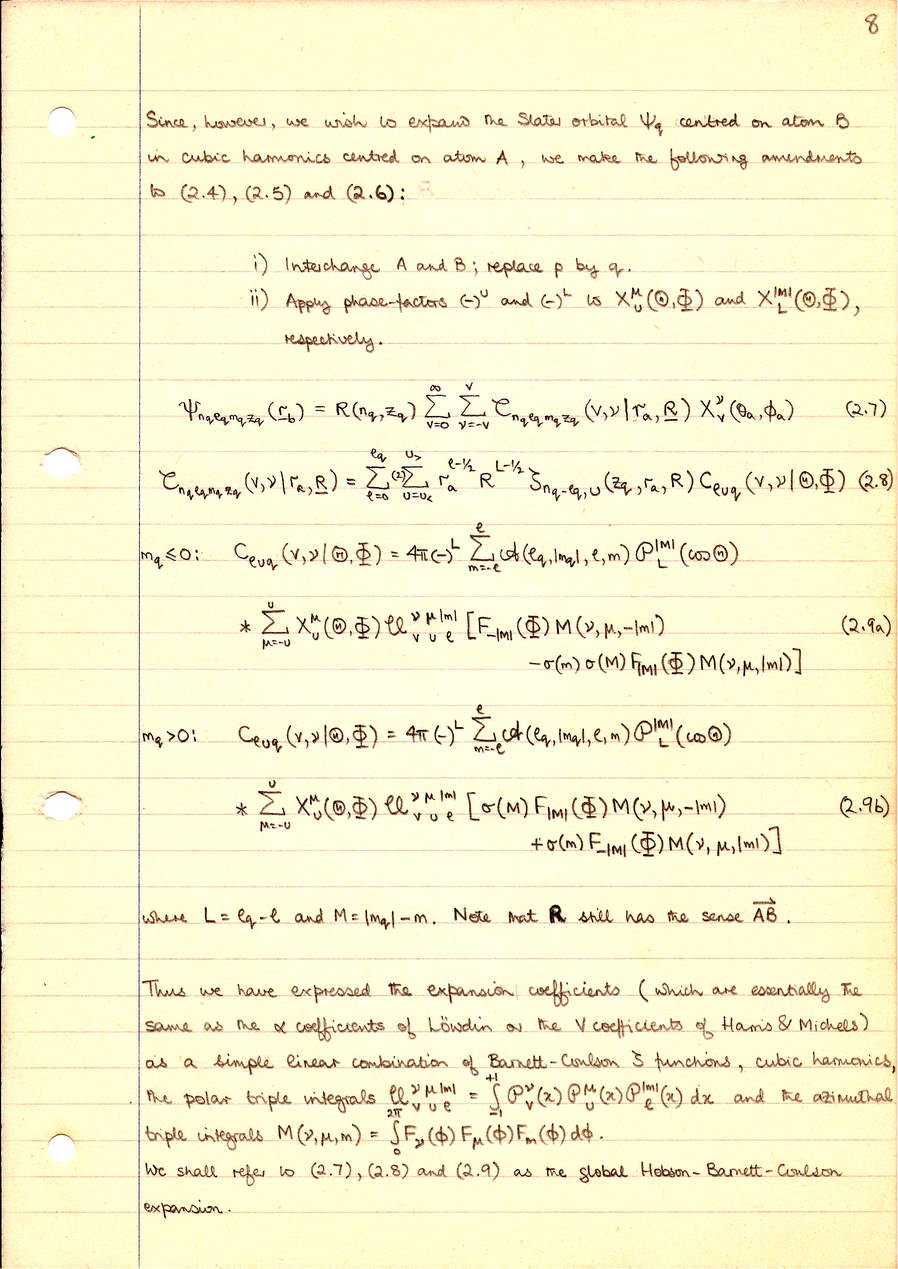 8
Since, however, we wish to expand the Slater orbital Ψq centred on atom B
in cubic harmonics centred on atom A, we make the following amendments
to (2.4), (2.5) and (2.6):
i) Interchange A and B; replace p by q.
ii) Apply phase-factors (-)^U and (-)^L to X_U^μ(Θ,Φ) and X_L^|M|(Θ,Φ),
respectively.
Ψ_{nq ℓq mq zq}(r_b) = R(nq,zq) Σ_{V=0}^{∞} Σ_{ν=-V}^{V} 𝒞_{nq ℓq mq zq}(V,ν|r_a,R) X_V^ν(θa,φa) (2.7)
𝒞_{nq ℓq mq zq}(V,ν|r_a,R) = Σ_{ℓ=0}^{ℓq} ⁽²⁾Σ_{U=U<}^{U>} r_a^{ℓ-1/2} R^{L-1/2} ζ_{nq-ℓq,U}(zq,r_a,R) C_{ℓUq}(V,ν|Θ,Φ) (2.8)
mq≤0: C_{ℓUq}(V,ν|Θ,Φ) = 4π(-)^L Σ_{m=-ℓ}^{ℓ} 𝒜(ℓq,|mq|,ℓ,m) 𝒫_L^{|M|}(cosΘ)
* Σ_{μ=-U}^{U} X_U^μ(Θ,Φ) 𝒰_{V U ℓ}^{ν μ |m|} [F_{-|M|}(Φ) M(ν,μ,-|m|) (2.9a)
-σ(m)σ(M) F_{|M|}(Φ) M(ν,μ,|m|)]
mq>0: C_{ℓUq}(V,ν|Θ,Φ) = 4π(-)^L Σ_{m=-ℓ}^{ℓ} 𝒜(ℓq,|mq|,ℓ,m) 𝒫_L^{|M|}(cosΘ)
* Σ_{μ=-U}^{U} X_U^μ(Θ,Φ) 𝒰_{V U ℓ}^{ν μ |m|} [σ(M) F_{|M|}(Φ) M(ν,μ,-|m|) (2.9b)
+σ(m) F_{-|M|}(Φ) M(ν,μ,|m|)]
where L = ℓq-ℓ and M = |mq|-m. Note that R still has the sense A⃗B⃗.
Thus we have expressed the expansion coefficients (which are essentially the
same as the α coefficients of Löwdin or the V coefficients of Harris & Michels)
as a simple linear combination of Barnett-Coulson ζ functions, cubic harmonics,
the polar triple integrals 𝒰_{V U ℓ}^{ν μ |m|} = ∫_{-1}^{+1} 𝒫_V^ν(x) 𝒫_U^μ(x) 𝒫_ℓ^{|m|}(x) dx and the azimuthal
triple integrals M(ν,μ,m) = ∫_0^{2π} F_ν(φ) F_μ(φ) F_m(φ) dφ.
We shall refer to (2.7), (2.8) and (2.9) as the global Hobson-Barnett-Coulson
expansion.